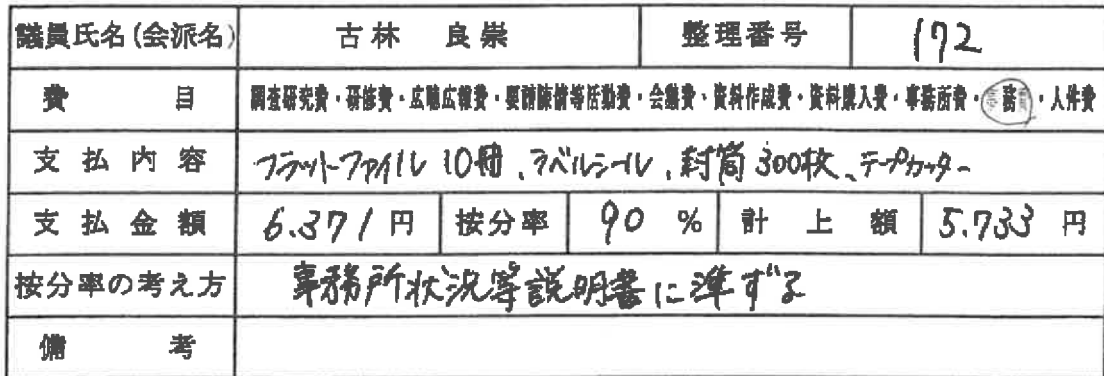 議員氏名(会派名) 古林 良崇 整理番号 172
費目 調査研究費・研修費・広聴広報費・要請陳情等活動費・会議費・資料作成費・資料購入費・事務所費・事務費・人件費
支払内容 フラットファイル10冊、ラベルシール、封筒300枚、テープカッター
支払金額 6.371円 按分率 90% 計上額 5.733円
按分率の考え方 事務所状況等説明書に準ずる
備考